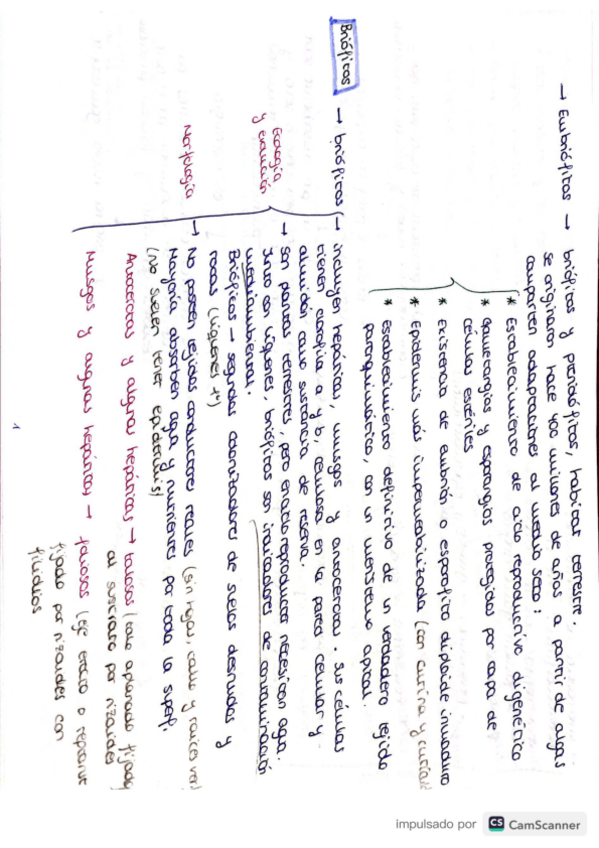 → Embriófitas → briófitas y pteridófitas, hábitat terrestre.
se originaron hace 400 millones de años a partir de algas
comparten adaptaciones al medio seco:
* Establecimiento de ciclo reproductivo digenético
* Gametangios y esporangios protegidos por capa de
células estériles
* Existencia de embrión o esporofito diploide inmaduro
* Epidermis más impermeabilizada (con cutina y cutícula
* Establecimiento definitivo de un verdadero tejido
parenquimático, con un meristemo apical.
Briófitas
→ briófitas → incluyen hepáticas, musgos y antocerotas. Sus células
tienen clorofila a y b, celulosa en la pared celular y
almidón como sustancia de reserva.
Ecología
y evolución
→ son plantas terrestres, pero en ciclo reproductor necesitan agua.
Junto con líquenes, briófitas son indicadores de contaminación
medioambiental.
Briófitas → segundas colonizadoras de suelos desnudos y
rocas (líquenes 1º)
Morfología
→ No poseen tejidos conductores reales (sin hojas, tallo y raíces ver
Mayoría absorben agua y nutrientes por toda la superf.
(No suelen tener epidermis)
Antocerotas y algunas hepáticas → talosas (talo aplanado fijado
al sustrato por rizoides
Musgos y algunas hepáticas → foliosas (eje erecto o reptante
fijado por rizoides con
filidios
1
impulsado por CS CamScanner